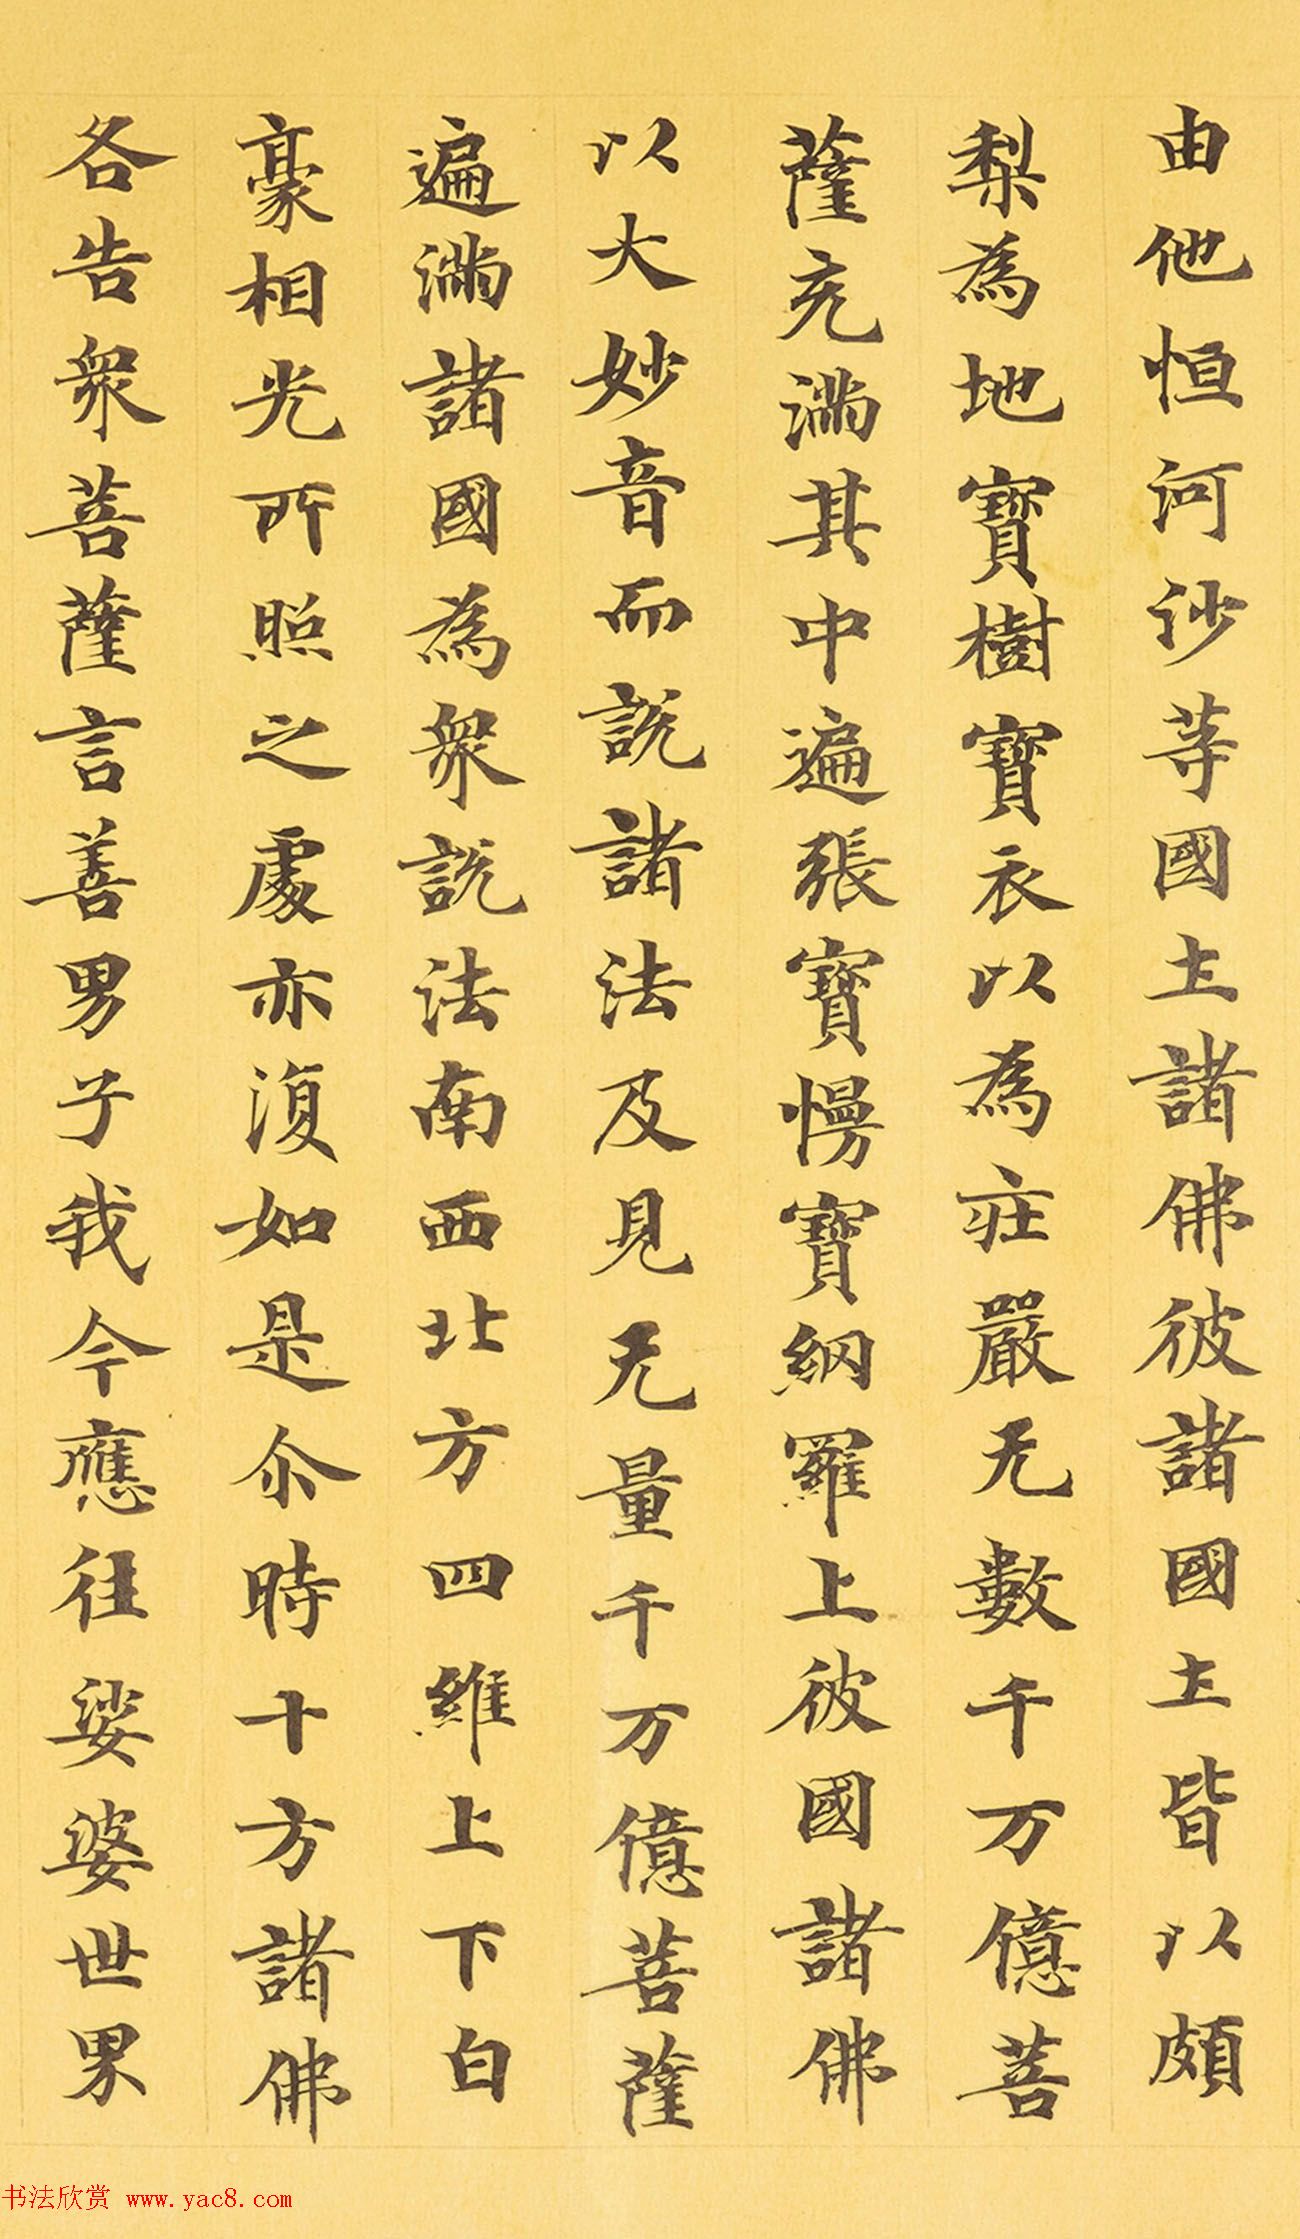 由他恒河沙等國土諸佛彼諸國土皆以頗
梨為地寶樹寶衣以為莊嚴无數千万億菩
薩充滿其中遍張寶幔寶網羅上彼國諸佛
以大妙音而說諸法及見无量千万億菩薩
遍滿諸國為眾說法南西北方四維上下白
豪相光所照之處亦復如是尒時十方諸佛
各告眾菩薩言善男子我今應往娑婆世界
书法欣赏 www.yac8.com